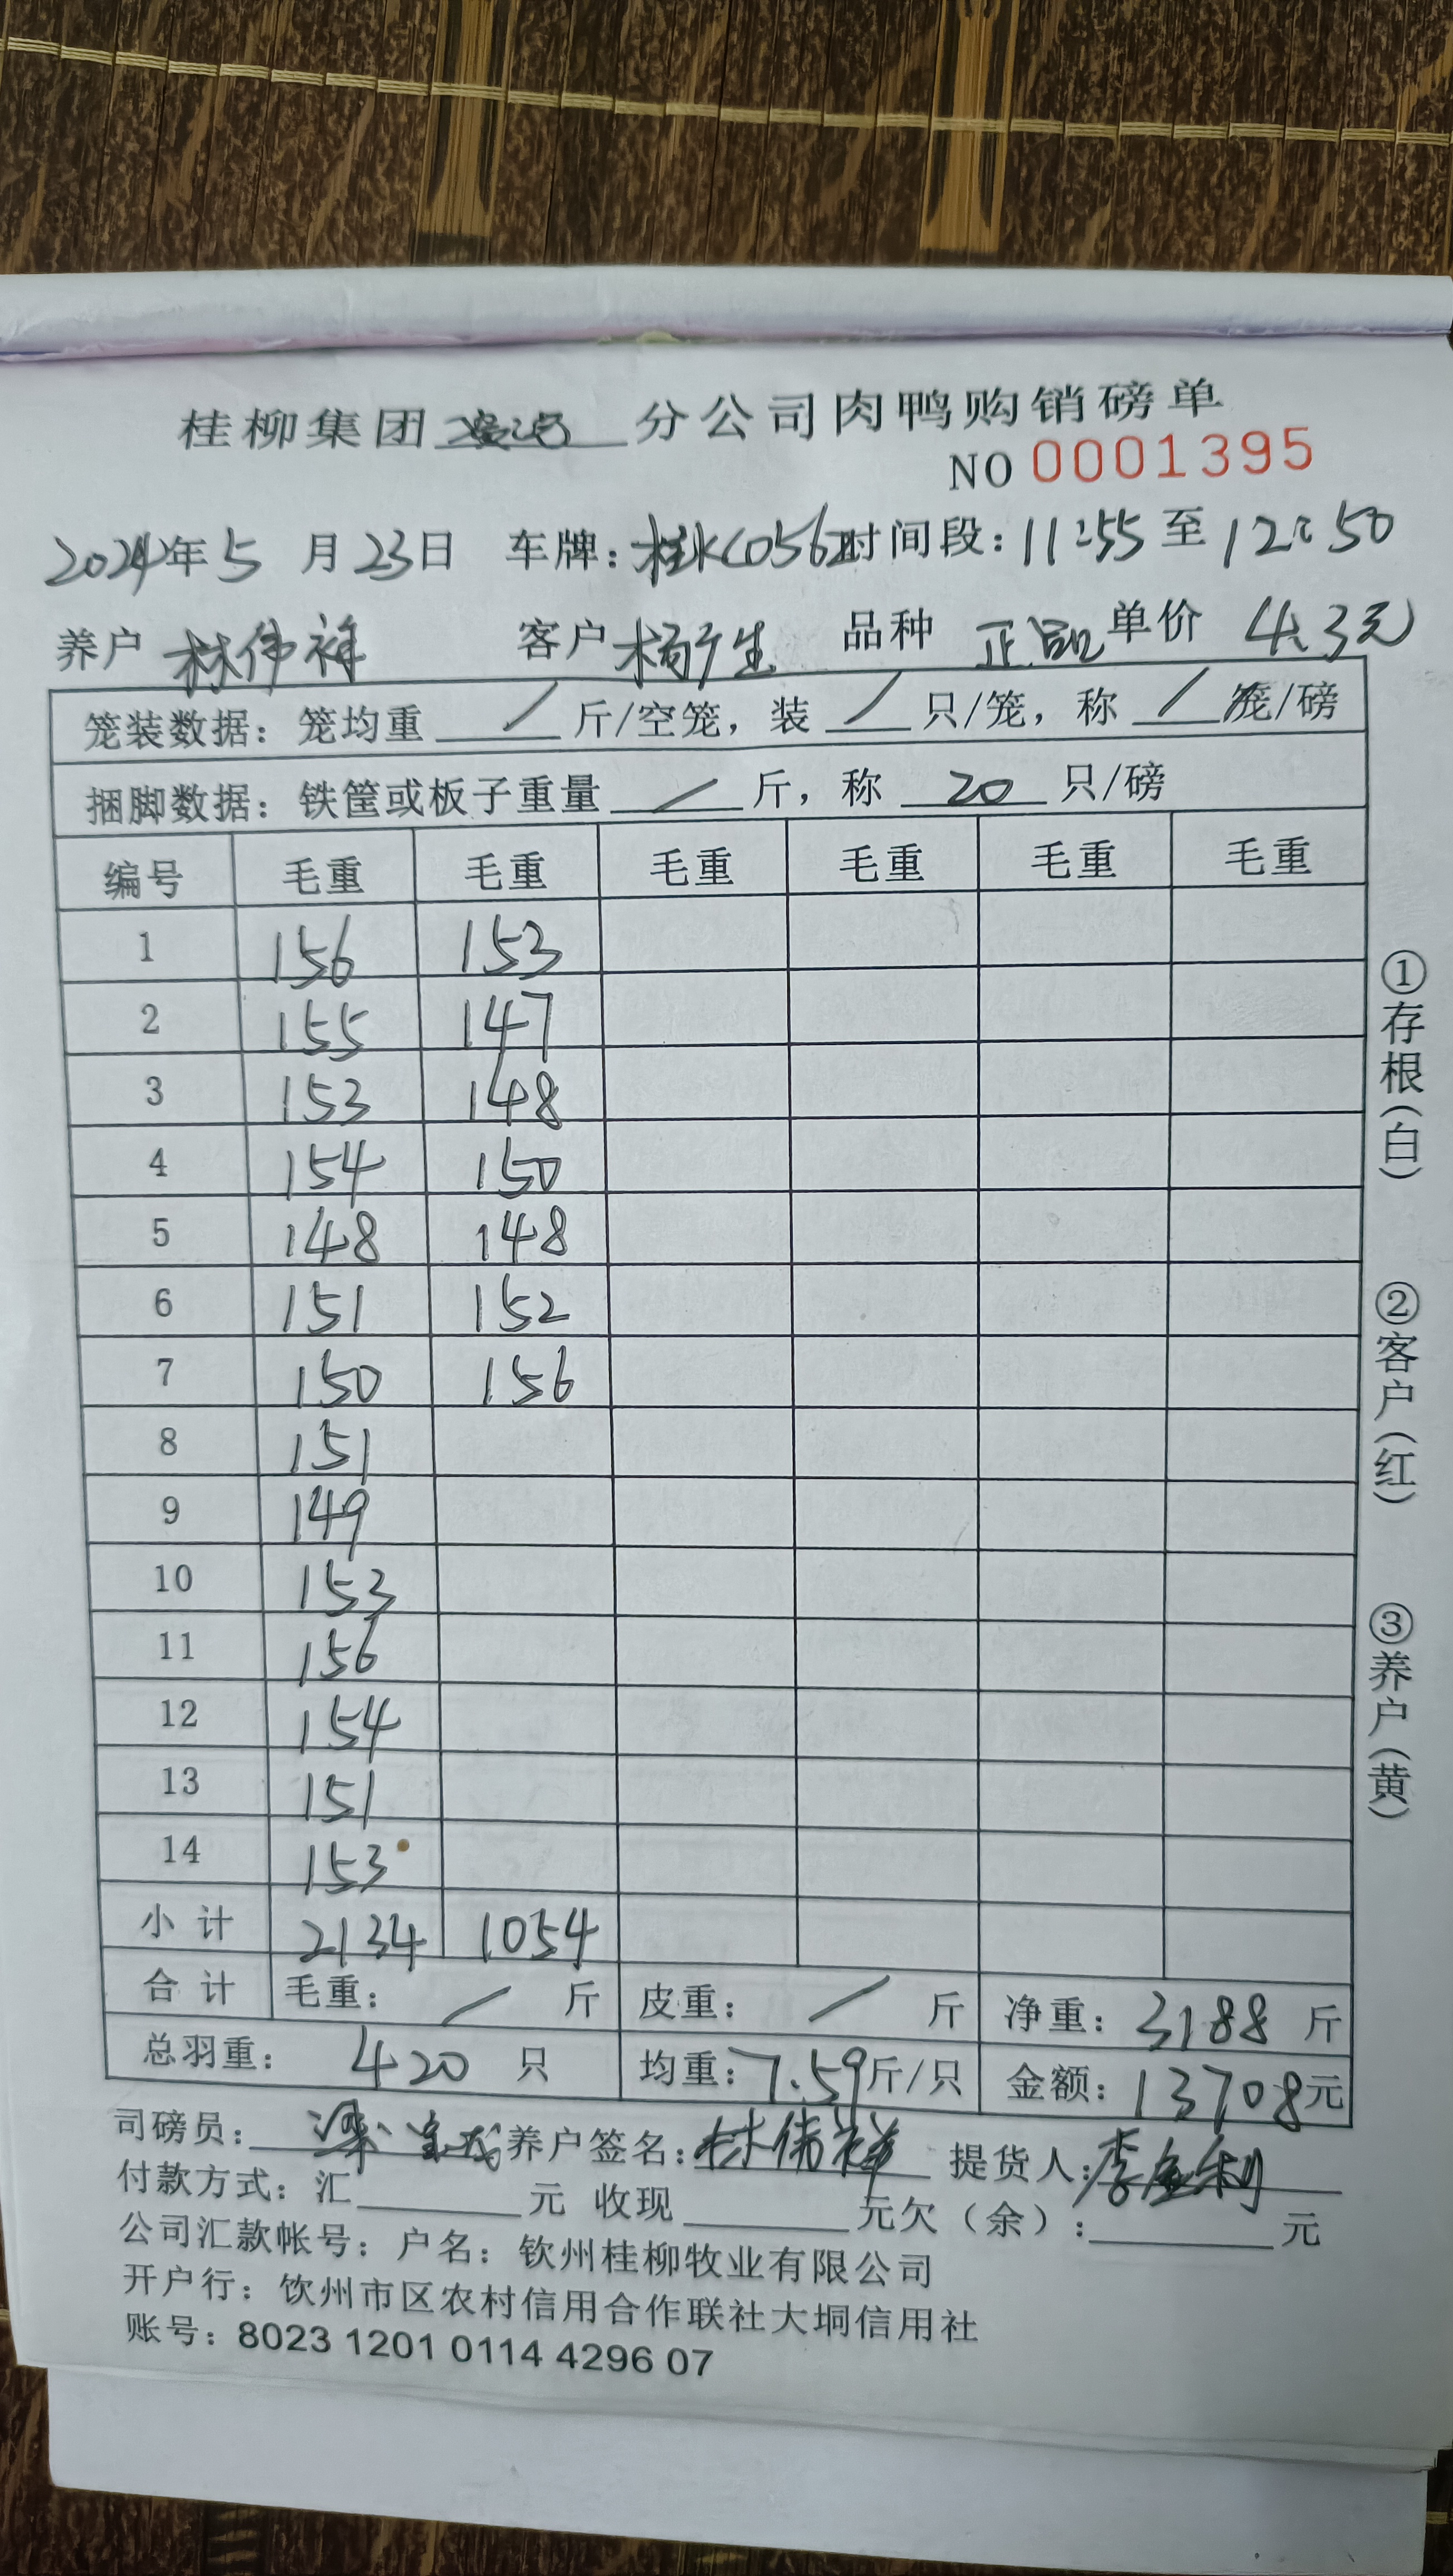 桂柳集团 分公司肉鸭购销磅单
NO 0001395
2024年5月23日 车牌: 时间段:11:55至12:50
养户 林伟祥 客户 杨广生 品种 正品 单价 4.3元
笼装数据: 笼均重 / 斤/空笼, 装 / 只/笼, 称 / 笼/磅
捆脚数据: 铁筐或板子重量 / 斤, 称 20 只/磅
编号 毛重 毛重 毛重 毛重 毛重 毛重
1 156 153
2 155 147
3 153 148
4 154 150
5 148 148
6 151 152
7 150 156
8 151
9 149
10 153
11 156
12 154
13 151
14 153
小计 2134 1054
合计 毛重: / 斤 皮重: / 斤 净重: 3188 斤
总羽重: 420 只 均重: 7.59斤/只 金额: 13708元
司磅员: 养户签名: 林伟祥 提货人:
付款方式: 汇 元 收现 元欠(余): 元
公司汇款帐号: 户名: 钦州桂柳牧业有限公司
开户行: 饮州市区农村信用合作联社大垌信用社
账号: 8023 1201 0114 4296 07
①存根(白)
②客户(红)
③养户(黄)